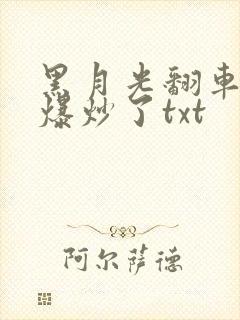 黑月光翻车
爆炒了txt
阿尔萨德